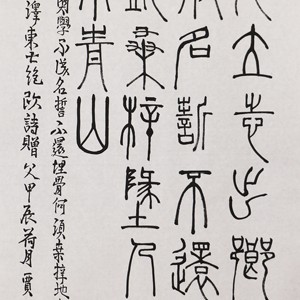 立志出鄉
名誓不還
桑梓墬人
青山
學不成名誓不還埋骨何須桑梓地
澤東七絕改詩贈父甲辰荷月賈